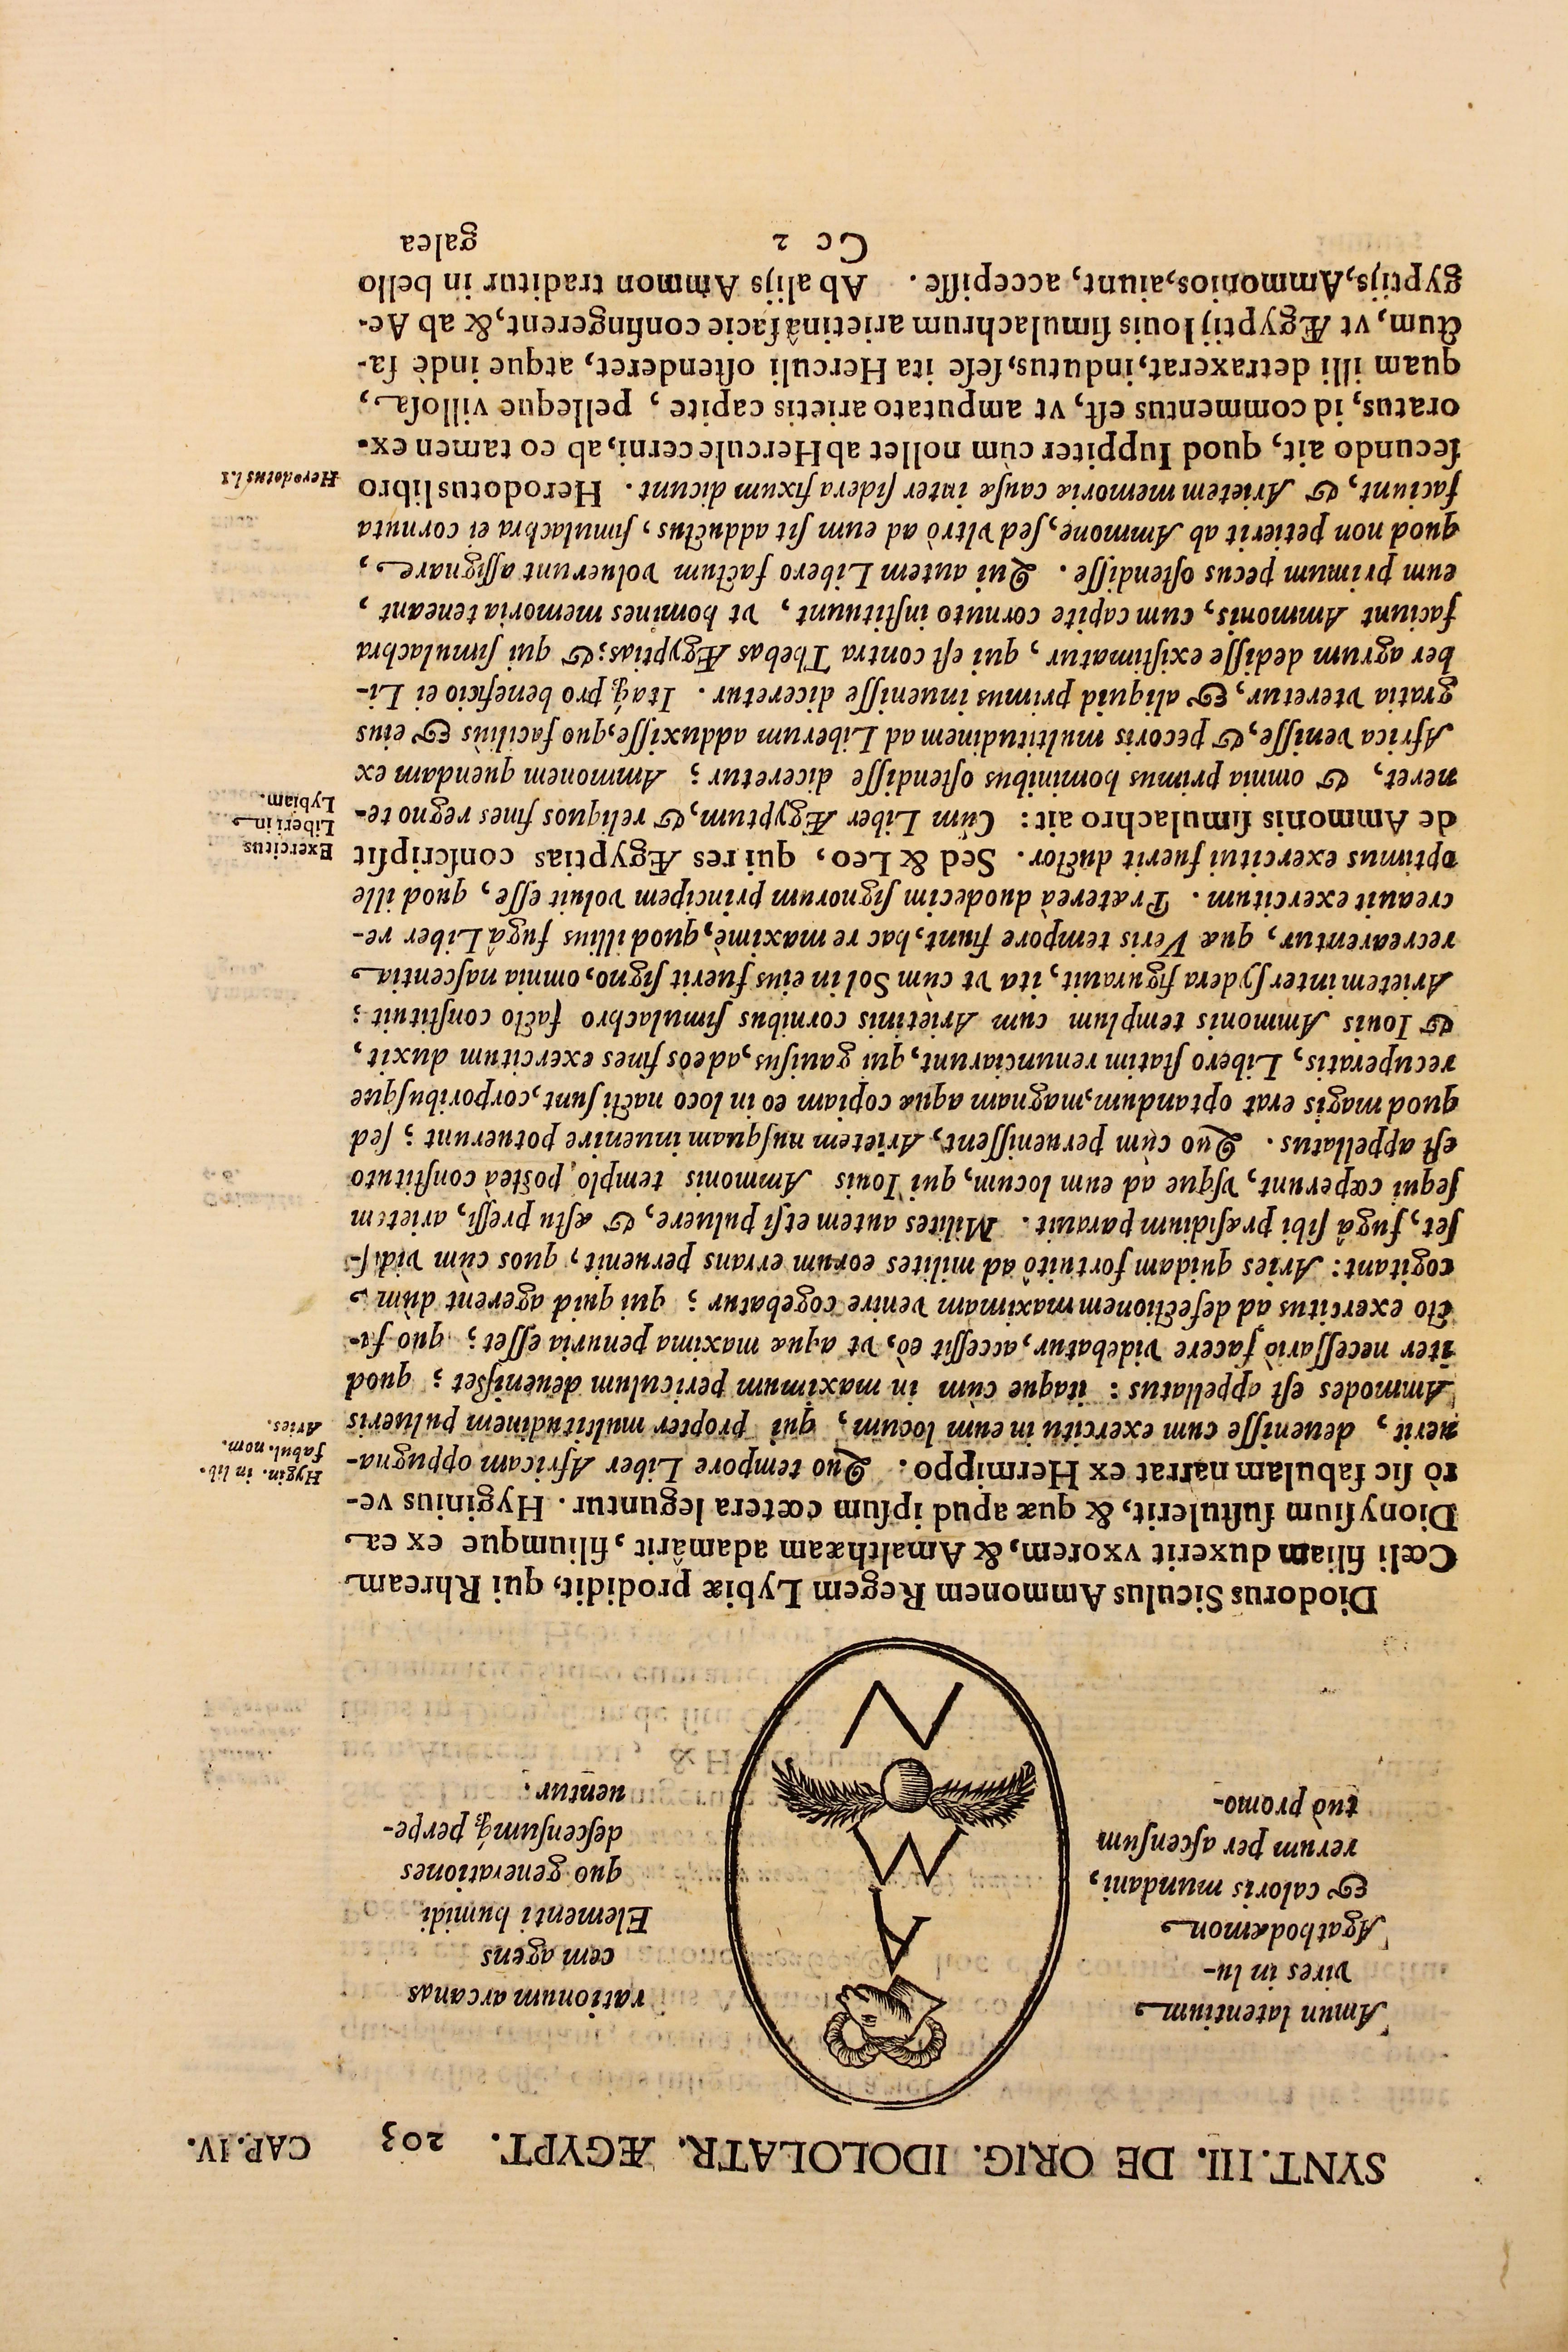 SYNT. III. DE ORIG. IDOLOLATR. ÆGYPT. 203 CAP. IV.
Amun latentium
vires in lu-
Agathodæmon
& caloris mundani,
rerum per ascensum
tuò promo-
A
M
N
rationum arcanas
cem agens
Elementi humidi
quo generationes
descensumq́; perpe-
uentur.
Diodorus Siculus Ammonem Regem Lybiæ prodidit, qui Rhream
Cœli filiam duxerit vxorem, & Amalthæam adamârit, filiumque ex ea
Dionysium sustulerit, & quæ apud ipsum cœtera leguntur. Hyginius ve-
rò sic fabulam narrat ex Hermippo. Quo tempore Liber Africam oppugna-
uerit, deuenisse cum exercitu in eum locum, qui propter multitudinem pulueris
Ammodes est appellatus: itaque cùm in maximum periculum deuenisset; quod
iter necessariò facere videbatur, accessit eò, vt aquæ maxima penuria esset; quo fa-
cto exercitus ad defectionem maximam venire cogebatur; qui quid agerent dùm
cogitant: Aries quidam fortuitò ad milites eorum errans peruenit, quos cùm vidis-
set, fugâ sibi præsidium parauit. Milites autem etsi puluere, & æstu pressi, arietem
sequi cœperunt, vsque ad eum locum, qui Iouis Ammonis templo posteà constituto
est appellatus. Quo cùm peruenissent, Arietem nusquam inuenire potuerunt; sed
quod magis erat optandum, magnam aquæ copiam eo in loco nacti sunt, corporibusque
recuperatis, Libero statim renunciarunt, qui gauisus, ad eos fines exercitum duxit,
& Iouis Ammonis templum cum Arietinis cornibus simulachro facto constituit;
Arietem inter sydera figurauit, ita vt cùm Sol in eius fuerit signo, omnia nascentia
recrearentur, quæ Veris tempore fiunt, hac re maximè, quod illius fugâ Liber re-
creauit exercitum. Prætereà duodecim signorum principem voluit esse, quod ille
optimus exercitui fuerit ductor. Sed & Leo, qui res Ægyptias conscripsit
de Ammonis simulachro ait: Cùm Liber Ægyptum, & reliquos fines regno te-
neret, & omnia primus hominibus ostendisse diceretur; Ammonem quendam ex
Africa venisse, & pecoris multitudinem ad Liberum adduxisse, quo faciliùs & eius
gratia vteretur, & aliquid primus inuenisse diceretur. Itaq́; pro beneficio ei Li-
ber agrum dedisse existimatur, qui est contra Thebas Ægyptias; & qui simulachra
faciunt Ammonis, cum capite cornuto instituunt, vt homines memoria teneant,
eum primum pecus ostendisse. Qui autem Libero factum voluerunt assignare,
quod non petierit ab Ammone, sed vltrò ad eum sit adductus, simulachra ei cornuta
faciunt, & Arietem memoriæ causæ inter sidera fixum dicunt. Herodotus libro
secundo ait, quod Iuppiter cùm nollet ab Hercule cerni, ab eo tamen ex-
oratus, id commentus est, vt amputato arietis capite, pelleque villosa,
quam illi detraxerat, indutus, sese ita Herculi ostenderet, atque indè fa-
ctum, vt Ægyptij Iouis simulachrum arietinâ facie confingerent, & ab Ae-
gyptijs, Ammonios, aiunt, accepisse. Ab alijs Ammon traditur in bello
Cc 2 galea
Hygin. in lib.
fabul. nom.
Aries.
Exercitus
Liberi in
Lybiam.
Herodotus l. 2